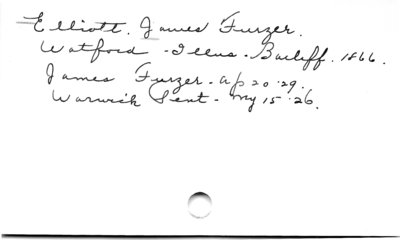 Elliott. James Furzer.
Watford - Illus - Bailiff. 1866.
James Furzer - Ap 20 '29.
Warwick Sent - My 15 '26.